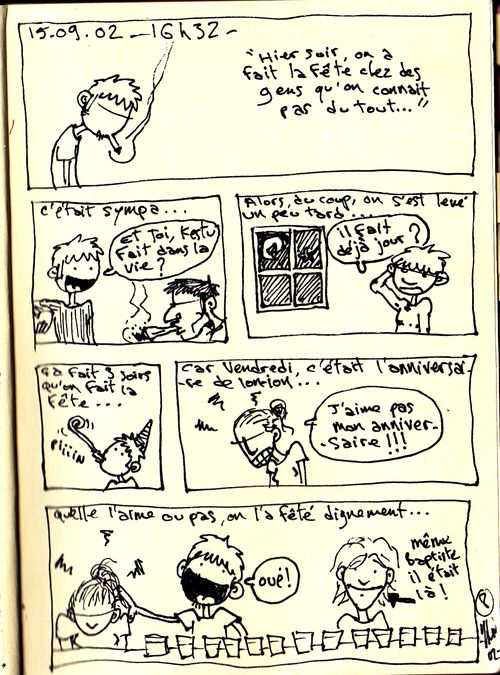 15.09.02 - 16h32 -
"Hier soir, on a
fait la fête chez des
gens qu'on connait
pas du tout..."
c'était sympa...
et toi, Kestu
fait dans la
vie ?
Alors, du coup, on s'est levé
un peu tard...
il fait
déjà jour ?
ça fait 3 soirs
qu'on fait la
fête...
Pliiin
car Vendredi, c'était l'anniversai-
-re de
J'aime pas
mon anniver-
saire !!!
quelle l'aime ou pas, on l'a fêté dignement...
oué !
même
baptiste
il était
là !
02-